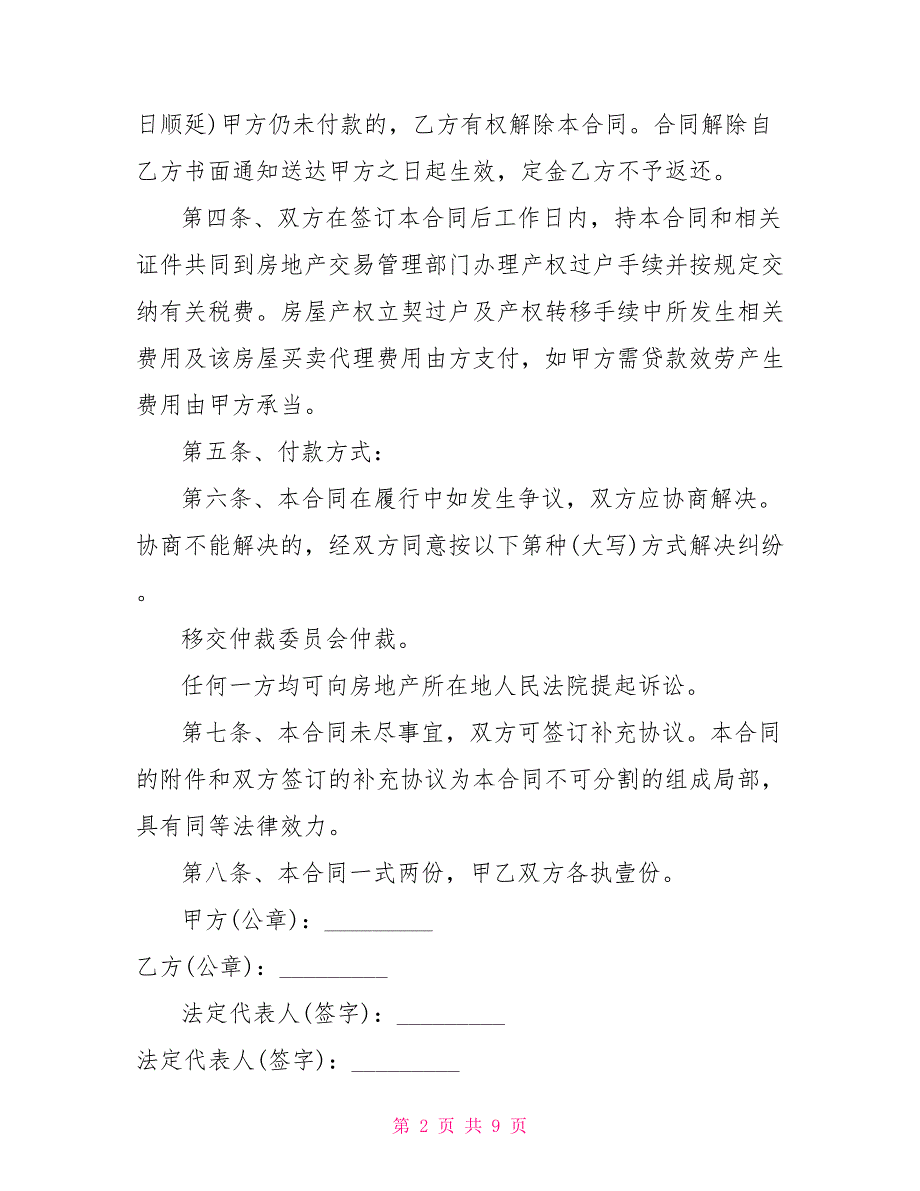 日顺延)甲方仍未付款的，乙方有权解除本合同。合同解除自
乙方书面通知送达甲方之日起生效，定金乙方不予返还。
第四条、双方在签订本合同后工作日内，持本合同和相关
证件共同到房地产交易管理部门办理产权过户手续并按规定交
纳有关税费。房屋产权立契过户及产权转移手续中所发生相关
费用及该房屋买卖代理费用由方支付，如甲方需贷款效劳产生
费用由甲方承当。
第五条、付款方式：
第六条、本合同在履行中如发生争议，双方应协商解决。
协商不能解决的，经双方同意按以下第种(大写)方式解决纠纷
。
移交仲裁委员会仲裁。
任何一方均可向房地产所在地人民法院提起诉讼。
第七条、本合同未尽事宜，双方可签订补充协议。本合同
的附件和双方签订的补充协议为本合同不可分割的组成局部，
具有同等法律效力。
第八条、本合同一式两份，甲乙双方各执壹份。
甲方(公章)：_________
乙方(公章)：_________
法定代表人(签字)：_________
法定代表人(签字)：_________
第 2 页 共 9 页